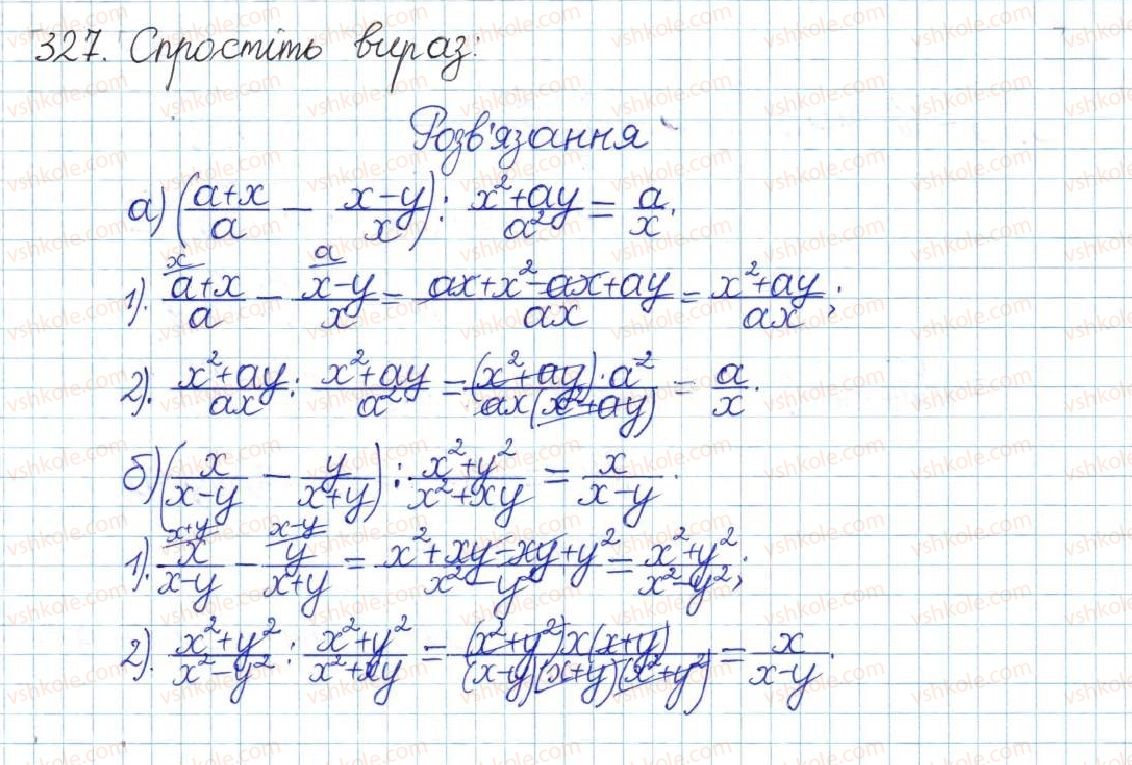 327. Спростіть вираз:
Розв'язання
а) (a+x/a − x−y/x) : x²+ay/a² = a/x.
1). ˣ a+x/a − ᵃ x−y/x = ax+x²−ax+ay/ax = x²+ay/ax ;
2). x²+ay/ax : x²+ay/a² = (x²+ay)·a²/ax(x²+ay) = a/x.
б) (x/x−y − y/x+y) : x²+y²/x²+xy = x/x−y.
1). ˣ⁺ʸ x/x−y − ˣ⁻ʸ y/x+y = x²+xy−xy+y²/x²−y² = x²+y²/x²−y² ;
2). x²+y²/x²−y² : x²+y²/x²+xy = (x²+y²)x(x+y)/(x−y)(x+y)(x²+y²) = x/x−y.
vshkole.com